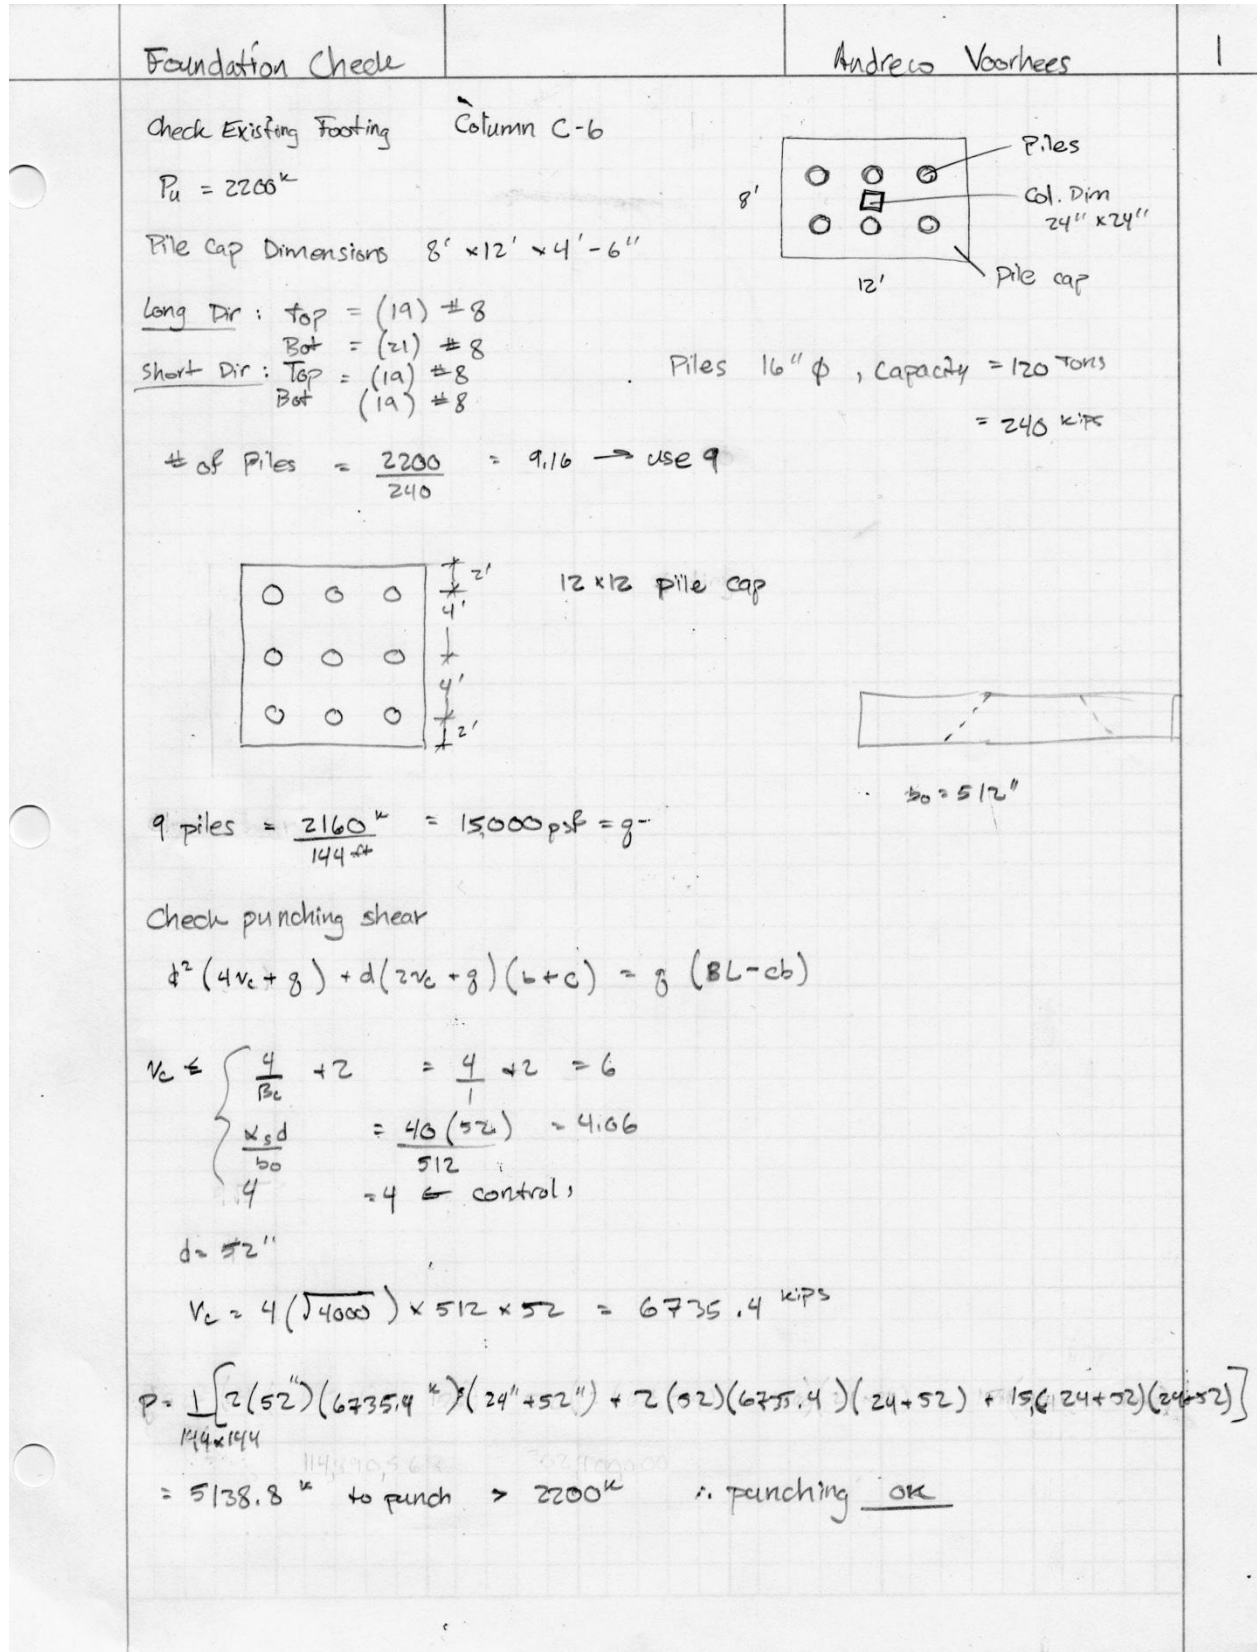 Foundation Check
Andreco Voorhees
1
Check Existing Footing Column C-6
Pu = 2200ᵏ
Pile Cap Dimensions 8' x12' x4'-6"
Piles
Col. Dim
24" x24"
Pile cap
8'
12'
Long Dir : Top = (19) #8
Bot = (21) #8
Short Dir : Top = (19) #8
Bot (19) #8
Piles 16" ϕ , Capacity = 120 Tons
= 240 kips
# of Piles = 2200/240 = 9.16 → use 9
2'
4'
4'
2'
12 x12 pile cap
b₀ = 512"
9 piles = 2160ᵏ/144 ft = 15,000 psf = q
Check punching shear
d² (4vc + q) + d(2vc + q)(b+c) = q (BL-cb)
vc ≤ { 4/βc +2 = 4/1 +2 = 6
αs d/b₀ = 40(52)/512 = 4.06
4 = 4 ← controls
d = 52"
Vc = 4(√4000) x 512 x 52 = 6735.4 kips
P = 1/144x144 [2(52")(6735.4ᵏ)(24"+52") + 2(52)(6735.4)(24+52) + 15(24+52)(24+52)]
= 5138.8ᵏ to punch > 2200ᵏ ∴ punching OK